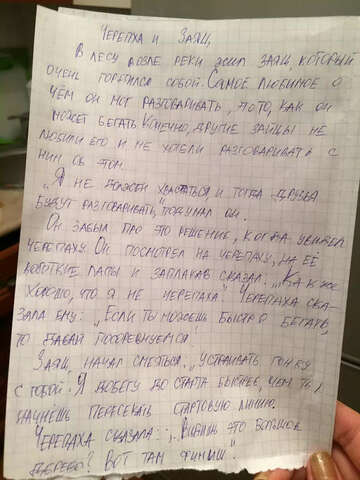 Черепха и Заяц
В лесу возле реки жил заяц, который
очень гордился собой. Самое любимое о
чём он мог разговаривать, то то, как он
может бегать. Конечно, другие зайцы не
любили его и не хотели разговаривать с
ним об этом.
„Я не должен хвастаться и тогда друзья
будут разговаривать," подумал он.
Он забыл про это решение, когда увидел
черепаху. Он посмотрел на черепаху, на её
короткие лапы и заплакав сказал. „Как же
хорошо, что я не черепаха." Черепаха ска-
зала ему: „Если ты можешь быстро бегать,
то давай посоревнуемся.
Заяц начал смеяться. „Устраивать гонку
с тобой. Я добегу до старта быстрее, чем ты
начнешь пересекать стартовую линию.
Черепаха сказала: „Видишь это большое
дерево? Вот там финиш."